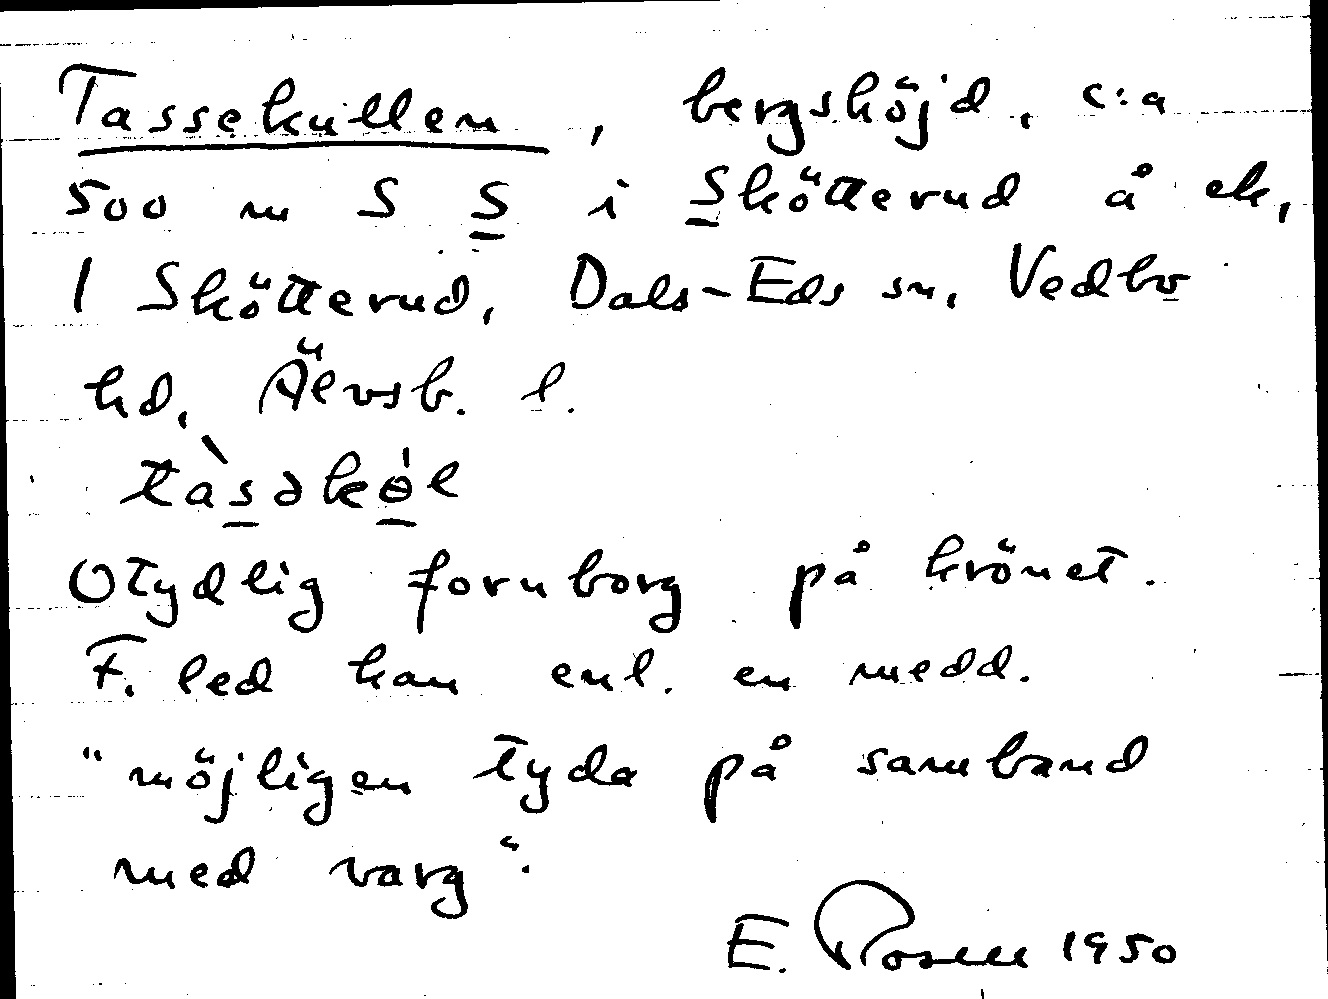 Tassekullen, bergshöjd, c:a
500 m S S i Skötterud å ek.
1 Skötterud, Dals-Eds sn, Vedbo
hd, Älvsb. l.
tàsəkɵ́l
Otydlig fornborg på krönet.
F. led kan enl. en medd.
"möjligen tyda på samband
med varg".
E. Rosell 1950